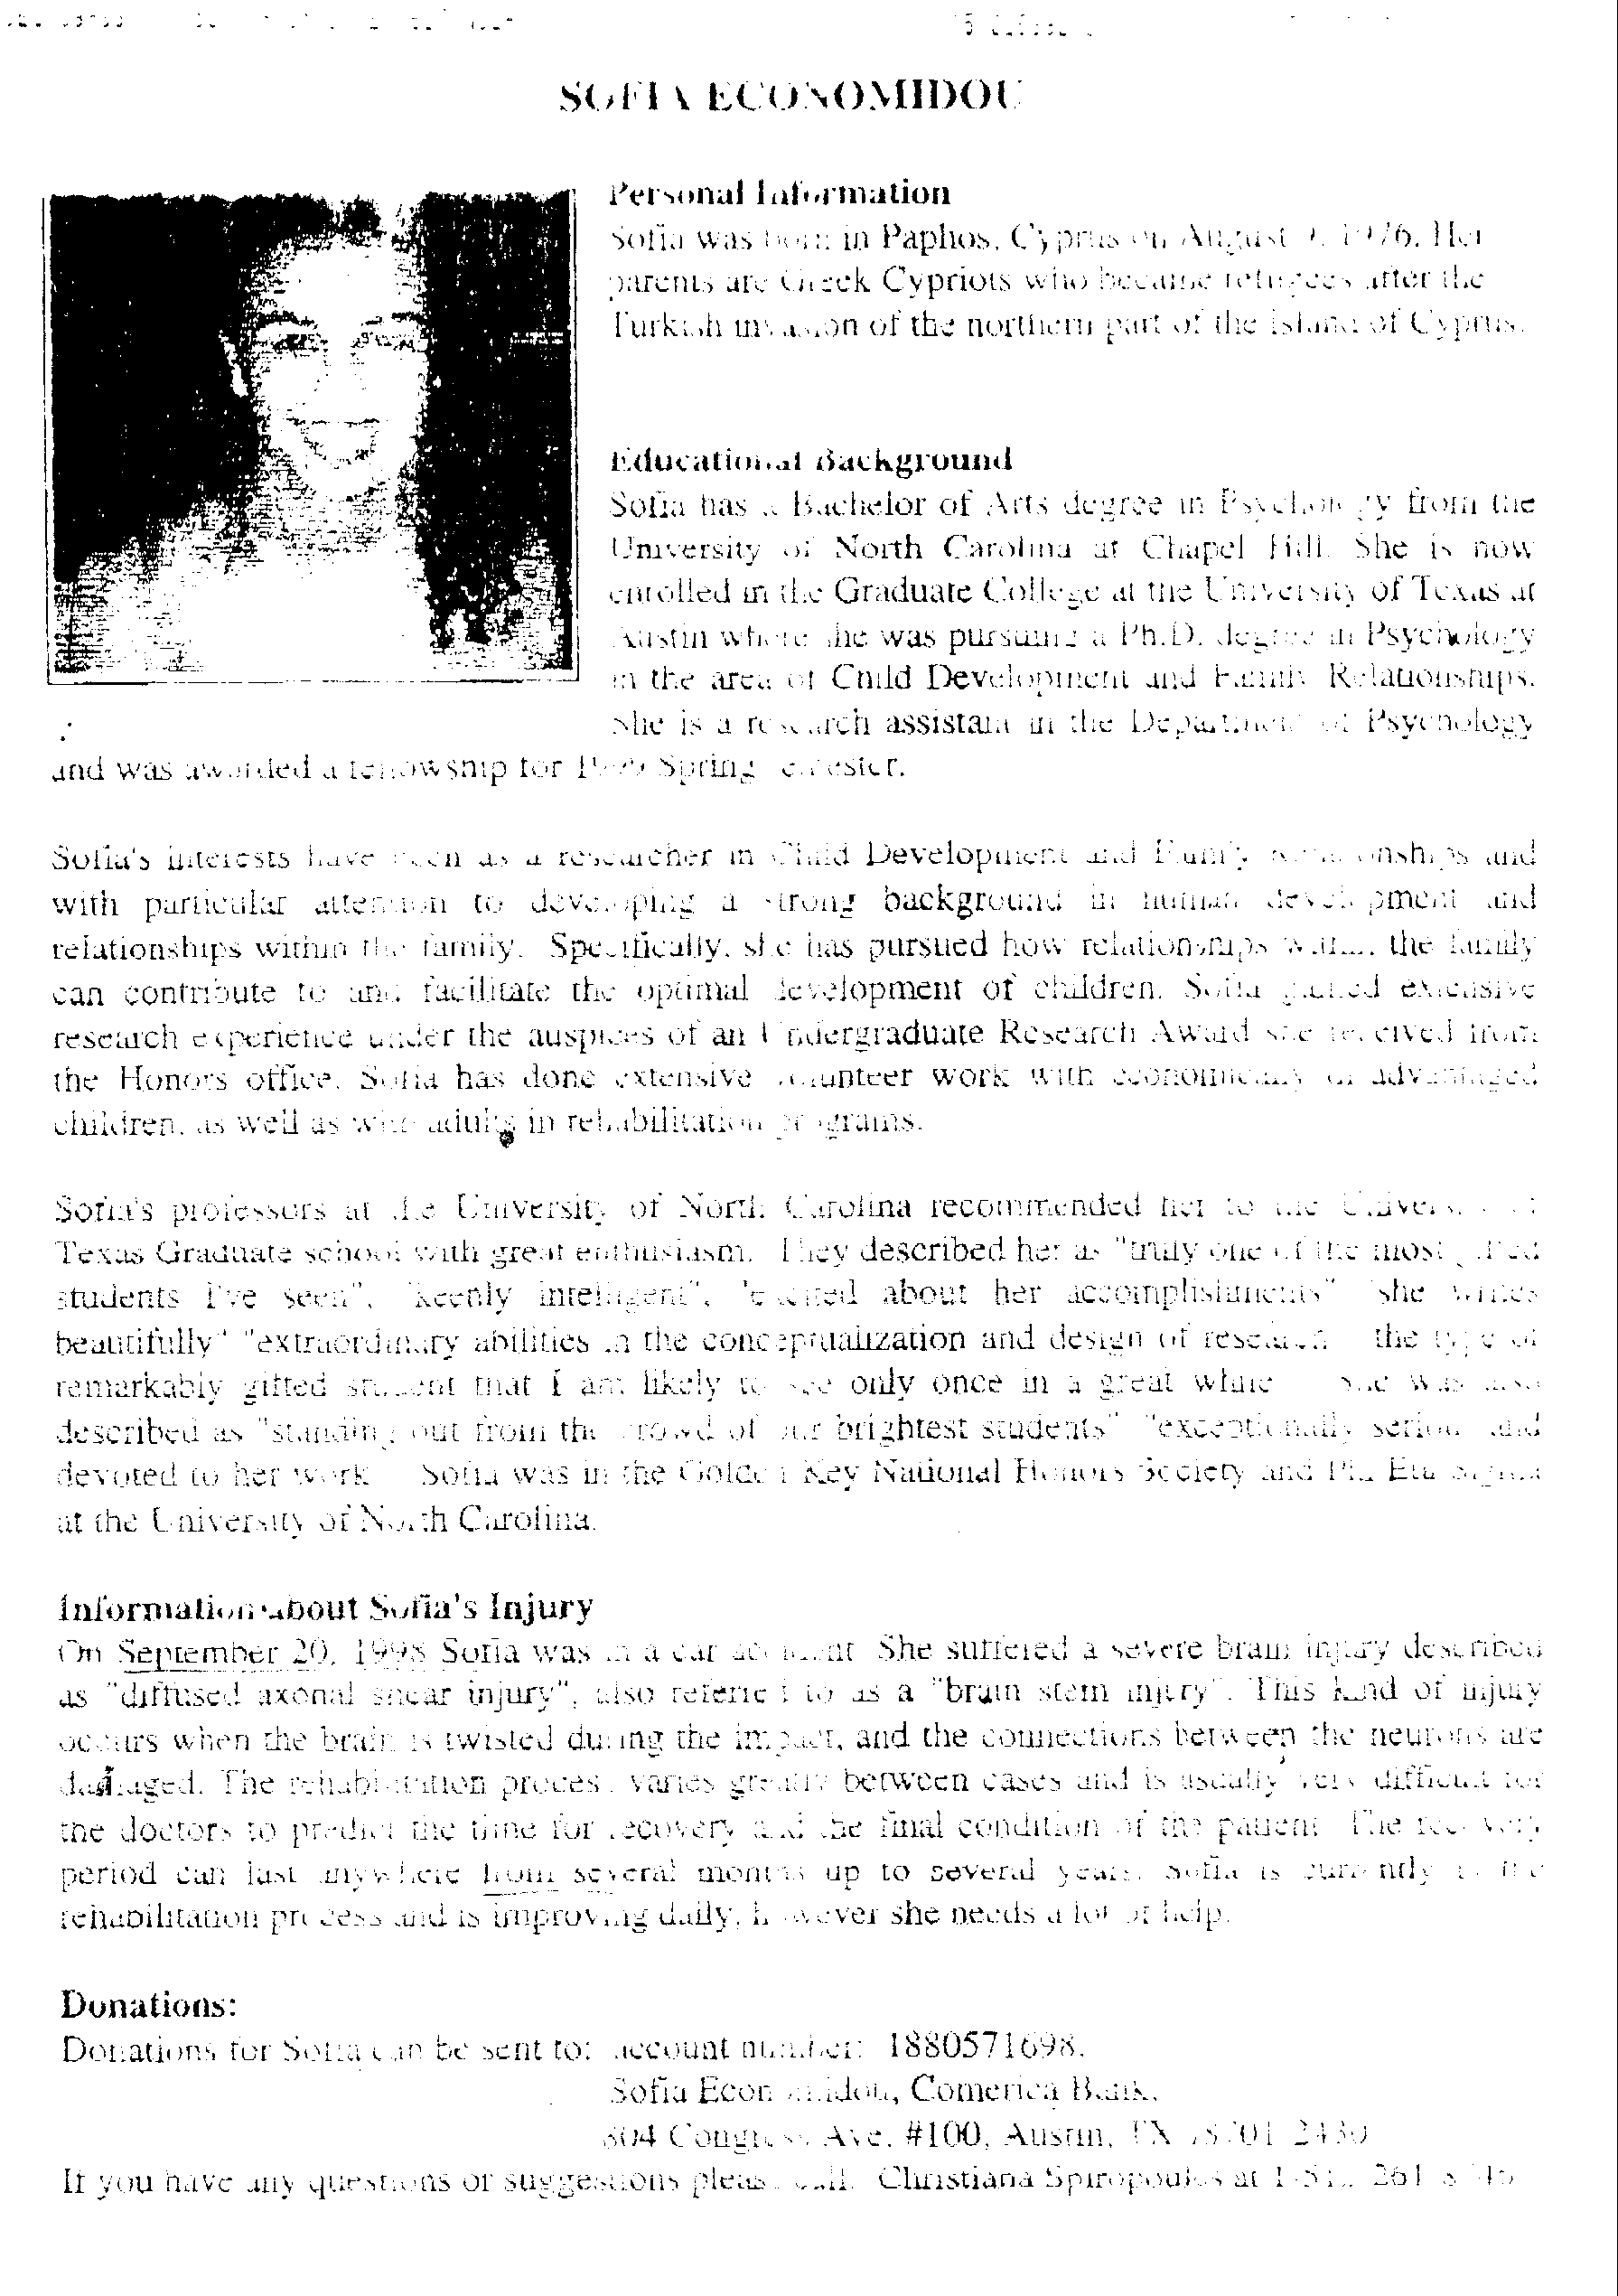 SOFIA ECONOMIDOU
Personal Information
Sofia was born in Paphos, Cyprus on August 9, 1976. Her
parents are Greek Cypriots who became refugees after the
Turkish invasion of the northern part of the island of Cyprus.
Educational Background
Sofia has a Bachelor of Arts degree in Psychology from the
University of North Carolina at Chapel Hill. She is now
enrolled in the Graduate College at the University of Texas at
Austin where she was pursuing a Ph.D. degree in Psychology
in the area of Child Development and Family Relationships.
She is a research assistant in the Department of Psychology
and was awarded a fellowship for 1999 Spring semester.
Sofia's interests have been as a researcher in Child Development and Family Relationships and
with particular attention to developing a strong background in human development and
relationships within the family. Specifically, she has pursued how relationships within the family
can contribute to and facilitate the optimal development of children. Sofia gained extensive
research experience under the auspices of an Undergraduate Research Award she received from
the Honors office. Sofia has done extensive volunteer work with economically disadvantaged
children, as well as with adults in rehabilitation programs.
Sofia's professors at the University of North Carolina recommended her to the University of
Texas Graduate school with great enthusiasm. They described her as "truly one of the most gifted
students I've seen", "keenly intelligent", "excited about her accomplishments" "she writes
beautifully" "extraordinary abilities in the conceptualization and design of research" "the type of
remarkably gifted student that I am likely to see only once in a great while". She was also
described as "standing out from the crowd of our brightest students" "exceptionally serious and
devoted to her work". Sofia was in the Golden Key National Honors Society and Phi Eta Sigma
at the University of North Carolina.
Information about Sofia's Injury
On September 20, 1998 Sofia was in a car accident. She suffered a severe brain injury described
as "diffused axonal shear injury", also referred to as a "brain stem injury". This kind of injury
occurs when the brain is twisted during the impact, and the connections between the neurons are
damaged. The rehabilitation process varies greatly between cases and is usually very difficult for
the doctors to predict the time for recovery and the final condition of the patient. The recovery
period can last anywhere from several months up to several years. Sofia is currently in the
rehabilitation process and is improving daily, however she needs a lot of help.
Donations:
Donations for Sofia can be sent to: account number: 1880571698.
Sofia Economidou, Comerica Bank,
804 Congress Ave. #100, Austin, TX 78701-2430
If you have any questions or suggestions please call: Christiana Spiropoulos at 261